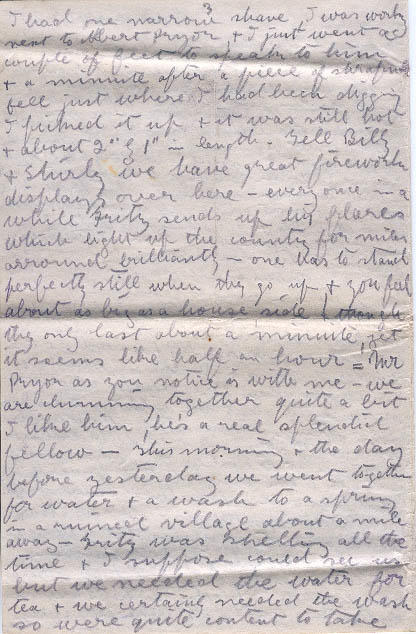 3
I had one narrow shave, I was workg
next to Albert Pryor & I just went a
couple of feet to speak to him
& a minuite after a piece of shrapnel
fell just where I had been digging
I picked it up & it was still hot
& about 2" by 1" – length. Tell Billy
& Shirly we have great firework
displays over here – every once in a
while Fritz sends up his flares
which light up the country for miles
arround brilliantly – one has to stand
perfectly still when they go up, & you feel
about as big as a house side & though
they only last about a minuite, yet
it seems like half an hour = Mr
Pryor as you notice is with me – we
are chumming together quite a bit
I like him, he's a real splendid
fellow – this morning & the day
before yesterday we went together
for water & a wash to a spring
in a ruined village about a mile
away – Fritz was shelling all the
time & I suppose could see us
but we needed the water for
tea & we certainly needed the wash
so were quite content to take